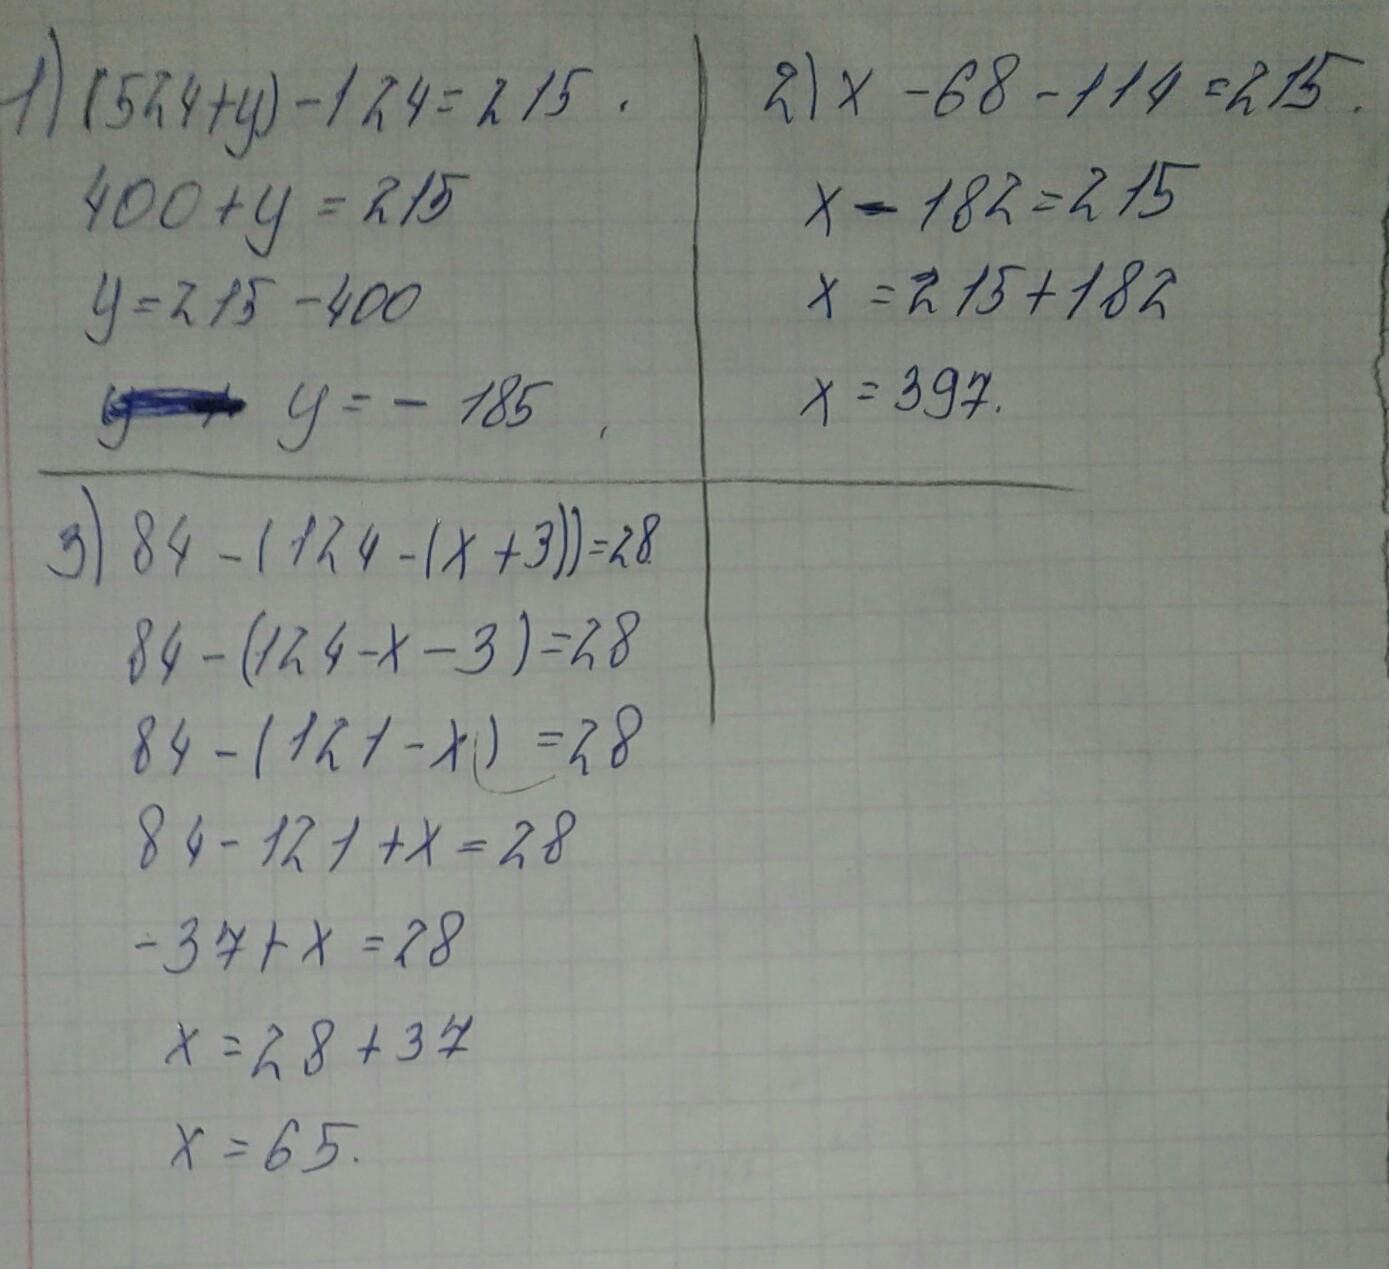 1) (524+y)-124=215.
400+y=215
y=215-400
y=-185.
2) x-68-114=215.
x-182=215
x=215+182
x=397.
3) 84-(124-(x+3))=28.
84-(124-x-3)=28
84-(121-x)=28
84-121+x=28
-37+x=28
x=28+37
x=65.